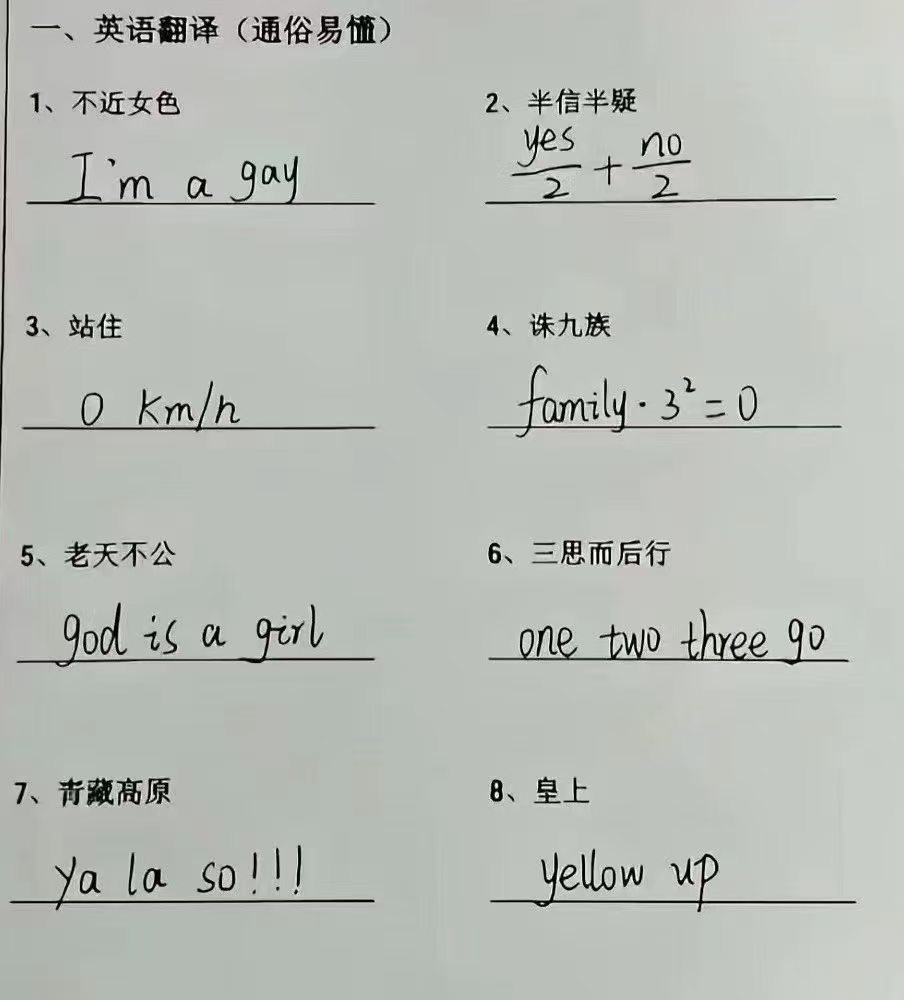 一、英语翻译（通俗易懂）
1、不近女色
I'm a gay
2、半信半疑
yes/2 + no/2
3、站住
0 km/h
4、诛九族
family · 3² = 0
5、老天不公
god is a girl
6、三思而后行
one two three go
7、青藏高原
Ya la so!!!
8、皇上
yellow up